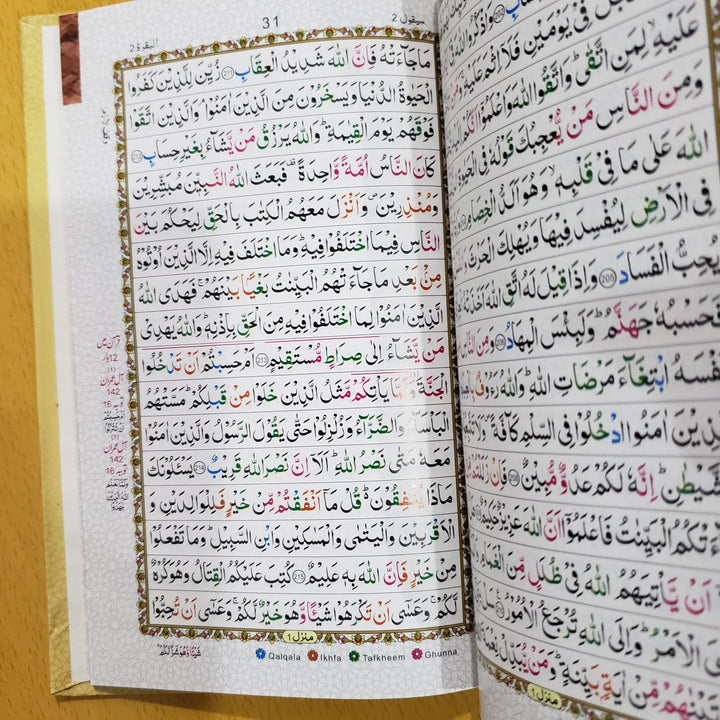 سيقول 2
31
البقرة 2
مَاجَآءَتْهُ فَاِنَّ اللّٰهَ شَدِيْدُ الْعِقَابِ ﴿211﴾ زُيِّنَ لِلَّذِيْنَ كَفَرُوا
الْحَيٰوةُ الدُّنْيَا وَيَسْخَرُوْنَ مِنَ الَّذِيْنَ اٰمَنُوْا ۘ وَالَّذِيْنَ اتَّقَوْا
فَوْقَهُمْ يَوْمَ الْقِيٰمَةِ ؕ وَاللّٰهُ يَرْزُقُ مَنْ يَّشَآءُ بِغَيْرِ حِسَابٍ ﴿212﴾
كَانَ النَّاسُ اُمَّةً وَّاحِدَةً ۟ فَبَعَثَ اللّٰهُ النَّبِيّٖنَ مُبَشِّرِيْنَ
وَمُنْذِرِيْنَ ۪ وَاَنْزَلَ مَعَهُمُ الْكِتٰبَ بِالْحَقِّ لِيَحْكُمَ بَيْنَ
النَّاسِ فِيْمَا اخْتَلَفُوْا فِيْهِ ؕ وَمَا اخْتَلَفَ فِيْهِ اِلَّا الَّذِيْنَ اُوْتُوْهُ
مِنْۢ بَعْدِ مَاجَآءَتْهُمُ الْبَيِّنٰتُ بَغْيًۢا بَيْنَهُمْ ۚ فَهَدَى اللّٰهُ
الَّذِيْنَ اٰمَنُوْا لِمَا اخْتَلَفُوْا فِيْهِ مِنَ الْحَقِّ بِاِذْنِهٖ ؕ وَاللّٰهُ يَهْدِيْ
مَنْ يَّشَآءُ اِلٰى صِرَاطٍ مُّسْتَقِيْمٍ ﴿213﴾ اَمْ حَسِبْتُمْ اَنْ تَدْخُلُوا
الْجَنَّةَ وَلَمَّا يَاْتِكُمْ مَّثَلُ الَّذِيْنَ خَلَوْا مِنْ قَبْلِكُمْ ؕ مَسَّتْهُمُ
الْبَاْسَآءُ وَالضَّرَّآءُ وَزُلْزِلُوْا حَتّٰى يَقُوْلَ الرَّسُوْلُ وَالَّذِيْنَ اٰمَنُوْا
مَعَهٗ مَتٰى نَصْرُ اللّٰهِ ؕ اَلَاۤ اِنَّ نَصْرَ اللّٰهِ قَرِيْبٌ ﴿214﴾ يَسْئَلُوْنَكَ
مَاذَا يُنْفِقُوْنَ ؕ قُلْ مَاۤ اَنْفَقْتُمْ مِّنْ خَيْرٍ فَلِلْوَالِدَيْنِ وَ
الْاَقْرَبِيْنَ وَالْيَتٰمٰى وَالْمَسٰكِيْنِ وَابْنِ السَّبِيْلِ ؕ وَمَا تَفْعَلُوْا
مِنْ خَيْرٍ فَاِنَّ اللّٰهَ بِهٖ عَلِيْمٌ ﴿215﴾ كُتِبَ عَلَيْكُمُ الْقِتَالُ وَهُوَ كُرْهٌ
لَّكُمْ ۚ وَعَسٰۤى اَنْ تَكْرَهُوْا شَيْـًٔا وَّهُوَ خَيْرٌ لَّكُمْ ۚ وَعَسٰۤى اَنْ تُحِبُّوْا
منزل 1
شَيْـًٔا وَّهُوَ شَرٌّ لَّكُمْ ؕ
Qalqala Ikhfa Tafkheem Ghunna
قرآن میں
12 بار
(1)
آل عمران
142
توبہ 16
(1)
آل عمران
142
توبہ 16
عَلَيْهِ ۙ لِمَنِ اتَّقٰى ؕ وَاتَّقُوا اللّٰهَ وَاعْلَمُوْۤا اَنَّكُمْ
وَمِنَ النَّاسِ مَنْ يُّعْجِبُكَ قَوْلُهٗ فِى الْحَيٰوةِ
اللّٰهَ عَلٰى مَا فِيْ قَلْبِهٖ ۙ وَهُوَ اَلَدُّ الْخِصَامِ
فِى الْاَرْضِ لِيُفْسِدَ فِيْهَا وَيُهْلِكَ الْحَرْثَ
يُحِبُّ الْفَسَادَ ﴿205﴾ وَاِذَا قِيْلَ لَهُ اتَّقِ اللّٰهَ اَخَذَتْهُ
فَحَسْبُهٗ جَهَنَّمُ ؕ وَلَبِئْسَ الْمِهَادُ ﴿206﴾ وَمِنَ النَّاسِ
نَفْسَهُ ابْتِغَآءَ مَرْضَاتِ اللّٰهِ ؕ وَاللّٰهُ رَءُوْفٌۢ
الَّذِيْنَ اٰمَنُوا ادْخُلُوْا فِى السِّلْمِ كَآفَّةً ۪ وَلَا تَتَّبِعُوْا
الشَّيْطٰنِ ؕ اِنَّهٗ لَكُمْ عَدُوٌّ مُّبِيْنٌ ﴿208﴾ فَاِنْ زَلَلْتُمْ
جَآءَتْكُمُ الْبَيِّنٰتُ فَاعْلَمُوْۤا اَنَّ اللّٰهَ عَزِيْزٌ حَكِيْمٌ
اَنْ يَّاْتِيَهُمُ اللّٰهُ فِيْ ظُلَلٍ مِّنَ الْغَمَامِ
الْاَمْرُ ؕ وَاِلَى اللّٰهِ تُرْجَعُ الْاُمُوْرُ
اٰتَيْنٰهُمْ مِّنْ اٰيَةٍۭ بَيِّنَةٍ ؕ وَمَنْ يُّبَدِّلْ
منزل 1